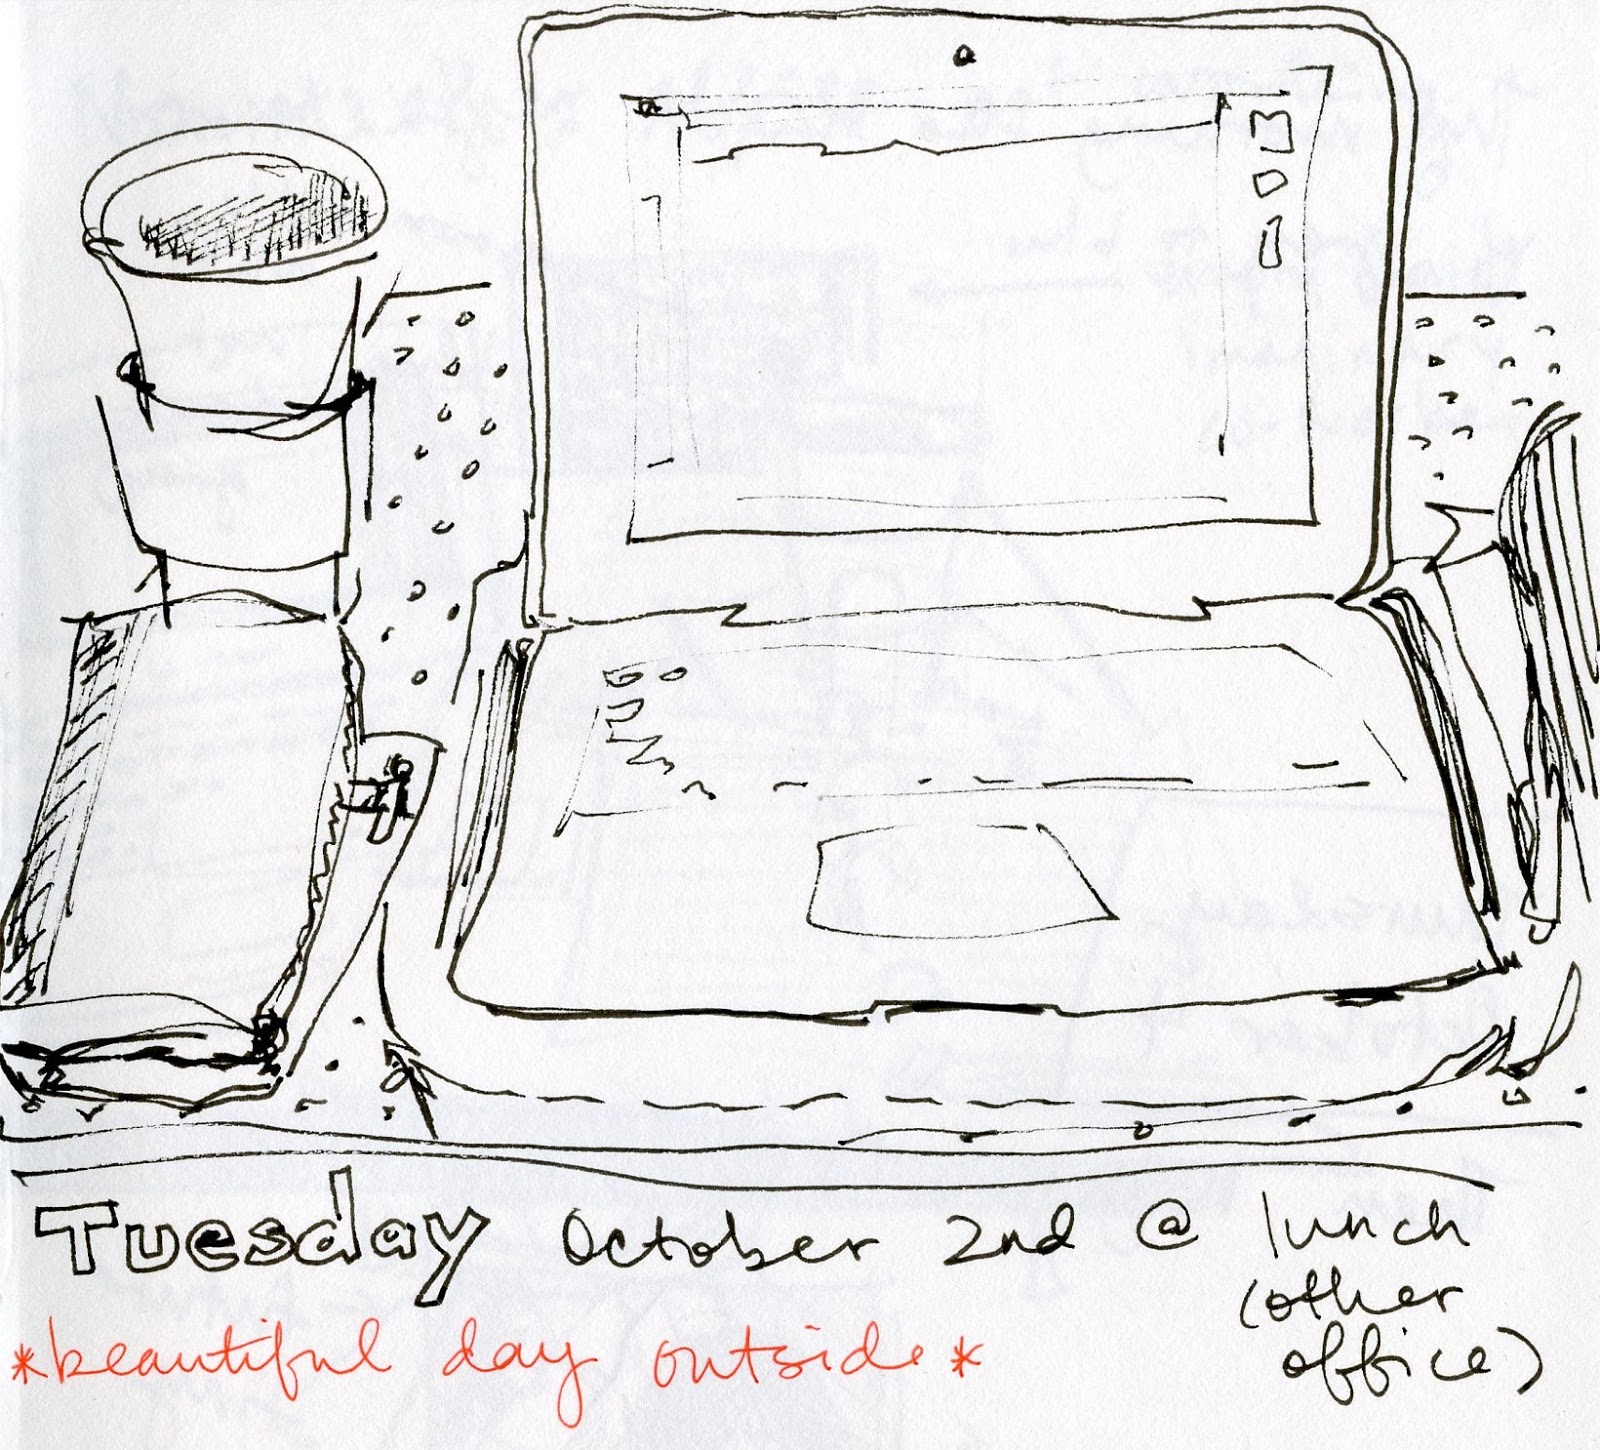 Tuesday October 2nd @ lunch
(other
office)
*beautiful day outside*